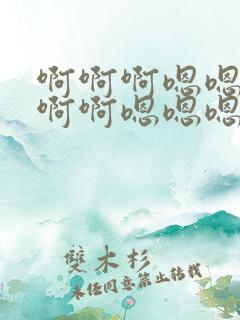 啊啊啊嗯嗯
啊啊嗯嗯嗯
雙木杉
未任同意禁止转载